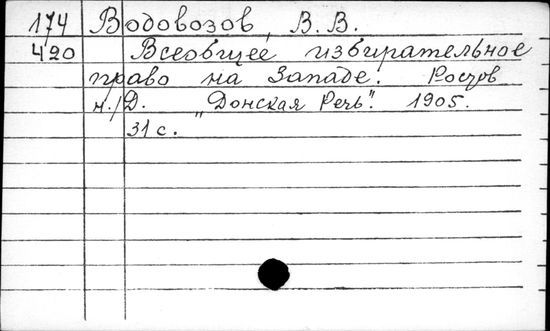 174 Водовозов, В. В.
420 Всеобщее избирательное
право на Западе. Ростов
н./Д. "Донская Речь". 1905.
31 с.